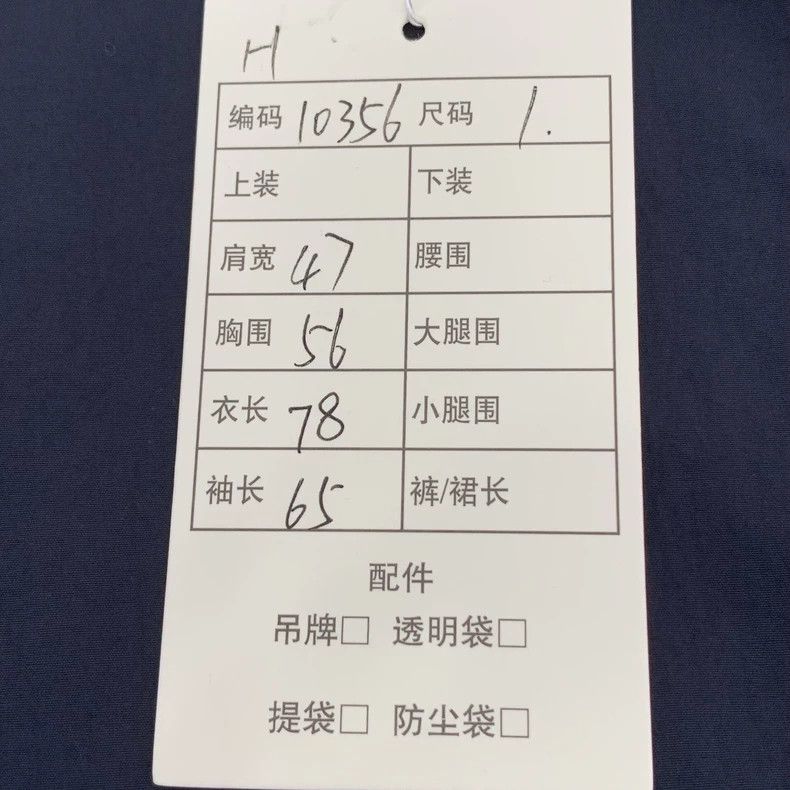 H
编码 10356 尺码 1.
上装 下装
肩宽 47 腰围
胸围 56 大腿围
衣长 78 小腿围
袖长 65 裤/裙长
配件
吊牌□ 透明袋□
提袋□ 防尘袋□